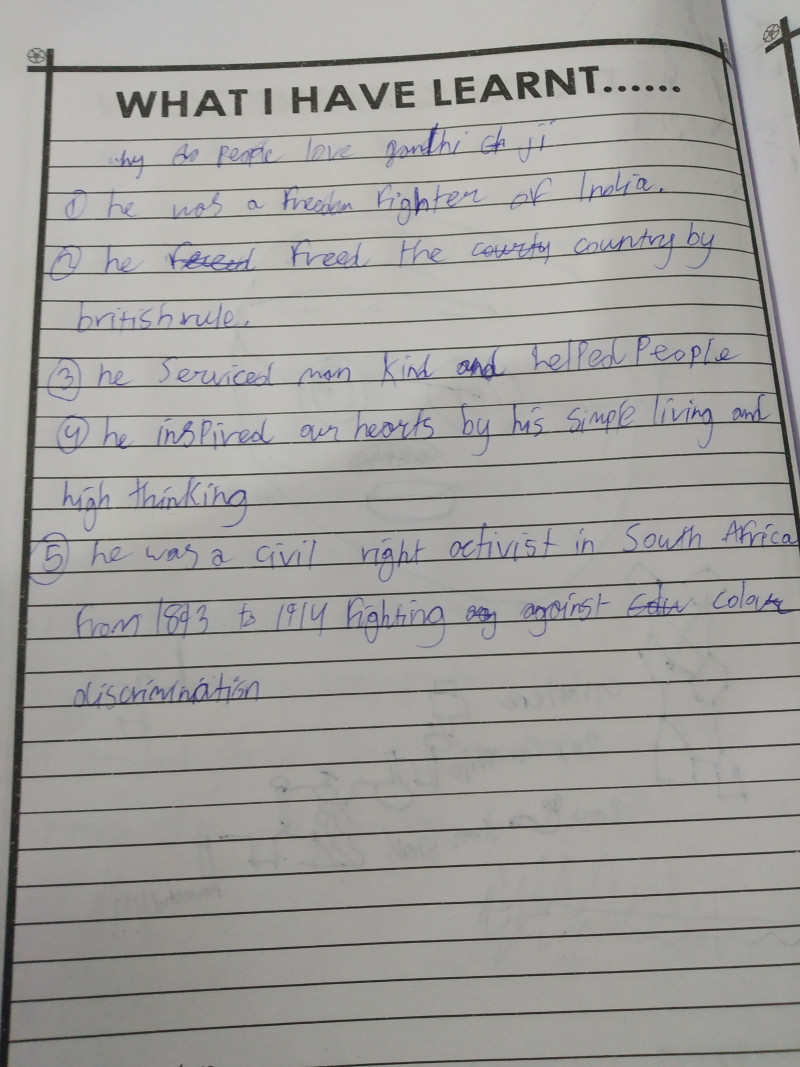 WHAT I HAVE LEARNT......
why do people love gandhi ji
① he was a freedom fighter of India.
② he freed the country by
british rule.
③ he serviced man kind and helped people
④ he inspired our hearts by his simple living and
high thinking
⑤ he was a civil right activist in South Africa
from 1893 to 1914 fighting against colour
discrimination